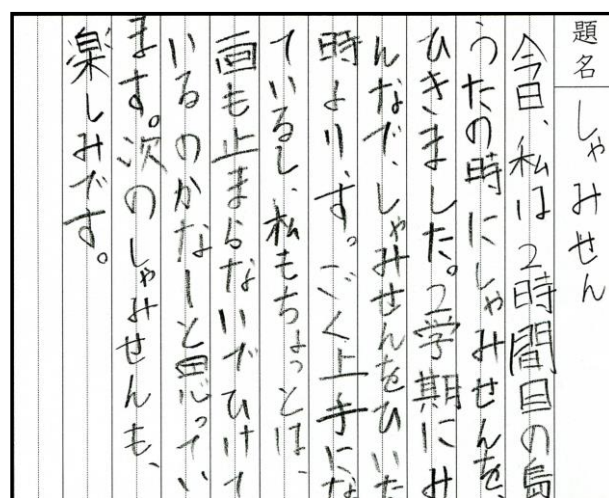 題名 しゃみせん
今日、私は2時間目の島
うたの時にしゃみせんを、
ひきました。2学期にみ
んなで、しゃみせんをひいた
時より、す。ごく上手にな
ているし、私もちょっとは、
面も止まらないでひけて
いるのかなーと思ってい
ます。次のしゃみせんも、
楽しみです。